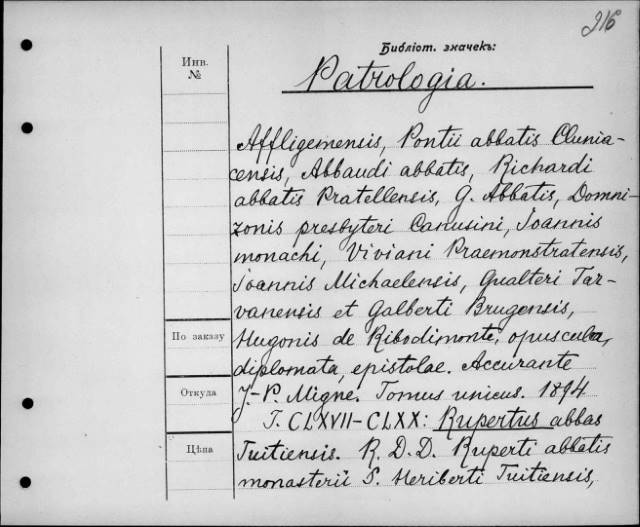 216
Библіот. значекъ:
Инв.
№
Patrologia.
Affligemensis, Pontii abbatis Clunia-
censis, Abbaudi abbatis, Richardi
abbatis Pratellensis, G. Abbatis, Domni-
zonis presbyteri Canusini, Joannis
monachi, Viviani Praemonstratensis,
Joannis Michaelensis, Gualteri Tar-
vanensis et Galberti Brugensis,
По заказу
Hugonis de Ribodimonte, opuscula,
diplomata, epistolae. Accurante
Откуда
J.-P. Migne. Tomus unicus. 1894
T. CLXVII-CLXX: Rupertus abbas
Цѣна
Tuitiensis. R. D. D. Ruperti abbatis
monasterii S. Heriberti Tuitiensis,